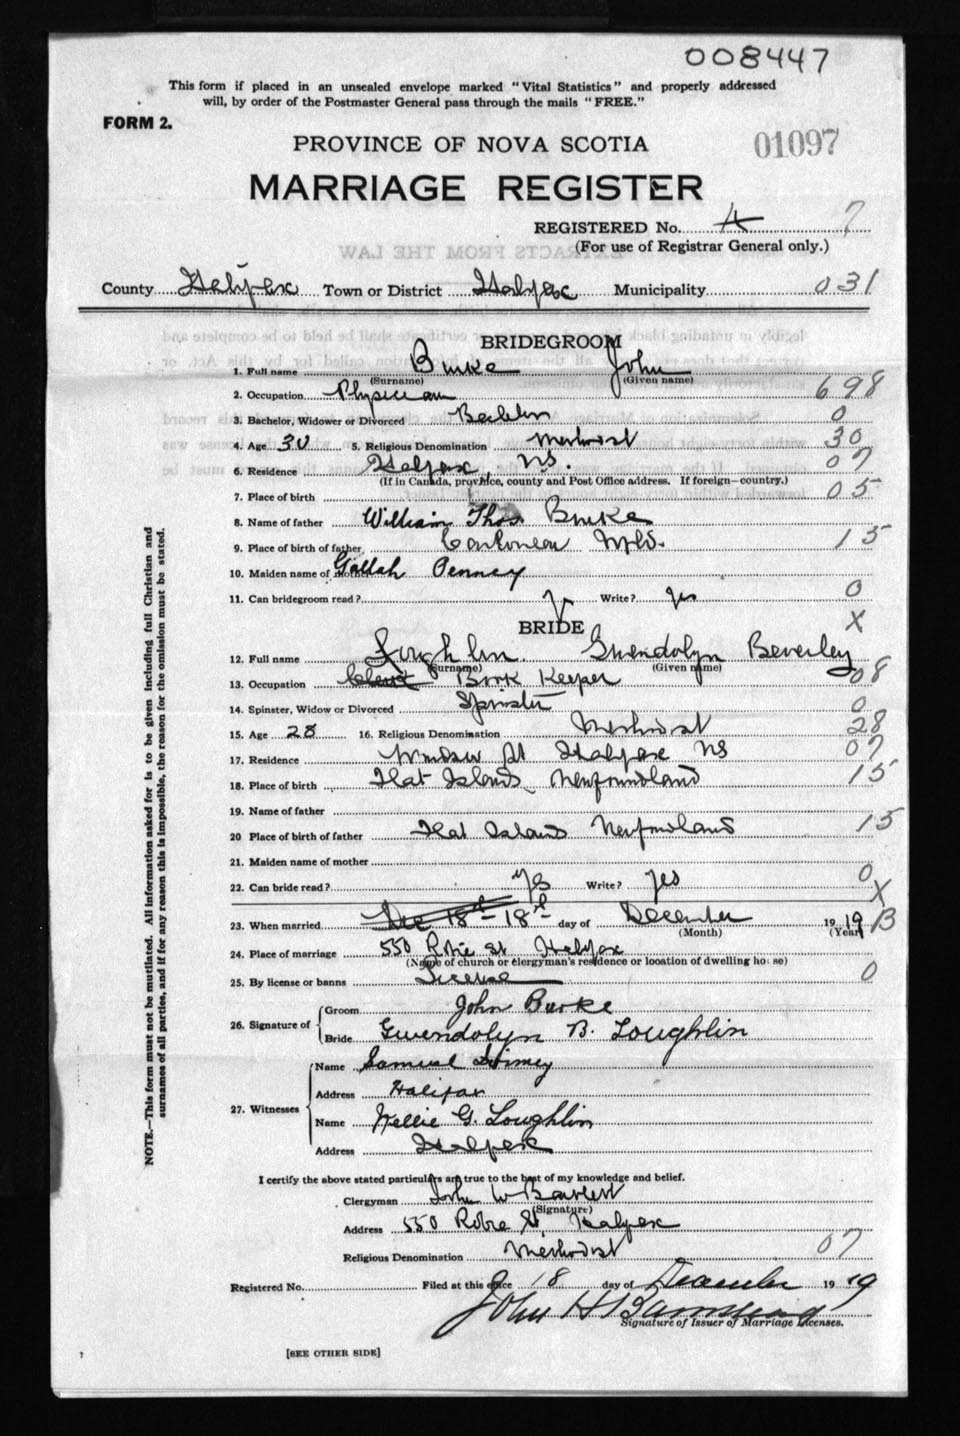 008447
This form if placed in an unsealed envelope marked "Vital Statistics" and properly addressed
will, by order of the Postmaster General pass through the mails "FREE."
FORM 2.
PROVINCE OF NOVA SCOTIA
01097
MARRIAGE REGISTER
REGISTERED No. 4 7
(For use of Registrar General only.)
County Halifax Town or District Halifax Municipality 031
BRIDEGROOM
1. Full name Burke John
(Surname) (Given name)
2. Occupation Physician 698
3. Bachelor, Widower or Divorced Bachelor 0
4. Age 30 5. Religious Denomination Methodist 30
6. Residence Halifax, N.S. 07
(If in Canada, province, county and Post Office address. If foreign—country.)
7. Place of birth 05
8. Name of father William Thos Burke
9. Place of birth of father Nfld. 15
10. Maiden name of mother Penney
11. Can bridegroom read? Write? yes 0
BRIDE X
12. Full name Loughlin Gwendolyn Beverley
(Surname) (Given name)
13. Occupation Clerk Book Keeper 08
14. Spinster, Widow or Divorced Spinster 0
15. Age 28 16. Religious Denomination Methodist 28
17. Residence Windsor St Halifax NS 07
18. Place of birth Flat Islands, Newfoundland 15
19. Name of father
20 Place of birth of father Flat Islands Newfoundland 15
21. Maiden name of mother
22. Can bride read? Yes Write? yes 0
X
23. When married Dec 18th 18th day of December 1919 B
(Month) (Year)
24. Place of marriage 550 Robie St Halifax
(Name of church or clergyman's residence or location of dwelling house)
25. By license or banns License 0
26. Signature of
Groom John Burke
Bride Gwendolyn B. Loughlin
27. Witnesses
Name Samuel
Address Halifax
Name Nellie G. Loughlin
Address Halifax
I certify the above stated particulars are true to the best of my knowledge and belief.
Clergyman John W
(Signature)
Address 550 Robie St Halifax
Religious Denomination Methodist 07
Registered No. Filed at this office 18 day of December 1919
John H
Signature of Issuer of Marriage Licenses.
[SEE OTHER SIDE]
NOTE.—This form must not be mutilated. All information asked for is to be given including full Christian and
surnames of all parties, and if for any reason this is impossible, the reason for the omission must be stated.